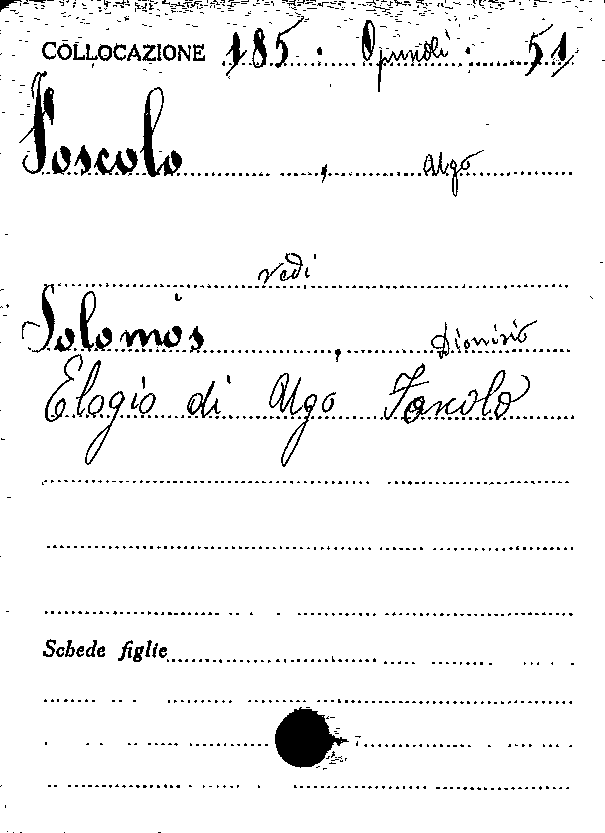 COLLOCAZIONE 185. Opuscoli. 51
Foscolo, Ugo
vedi
Solomòs, Dionisio
Elogio di Ugo Foscolo
Schede figlie